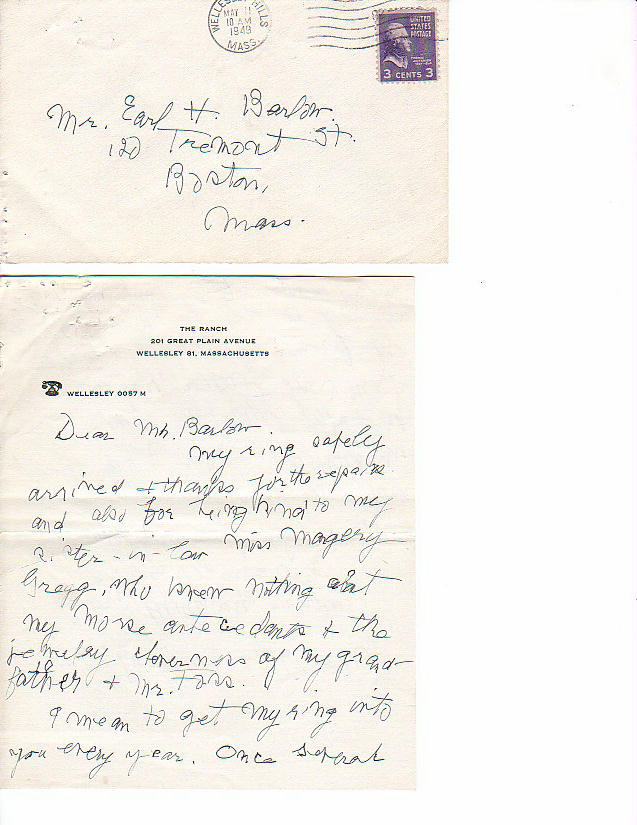 WELLESLEY HILLS
MAY 11
10 AM
1949
MASS.
UNITED
STATES
POSTAGE
3 CENTS 3
Mr. Earl H. Barlow.
120 Tremont St.
Boston,
Mass.
THE RANCH
201 GREAT PLAIN AVENUE
WELLESLEY 81, MASSACHUSETTS
WELLESLEY 0057 M
Dear Mr. Barlow.
My ring safely
arrived + thanks for the repairs
and also for being kind to my
sister-in-law Miss Margery
Gregg, who knew nothing about
my Morse antecedants + the
jewelry cleverness of my grand-
father + Mr. Foss.
I mean to get my ring into
you every year. Once several